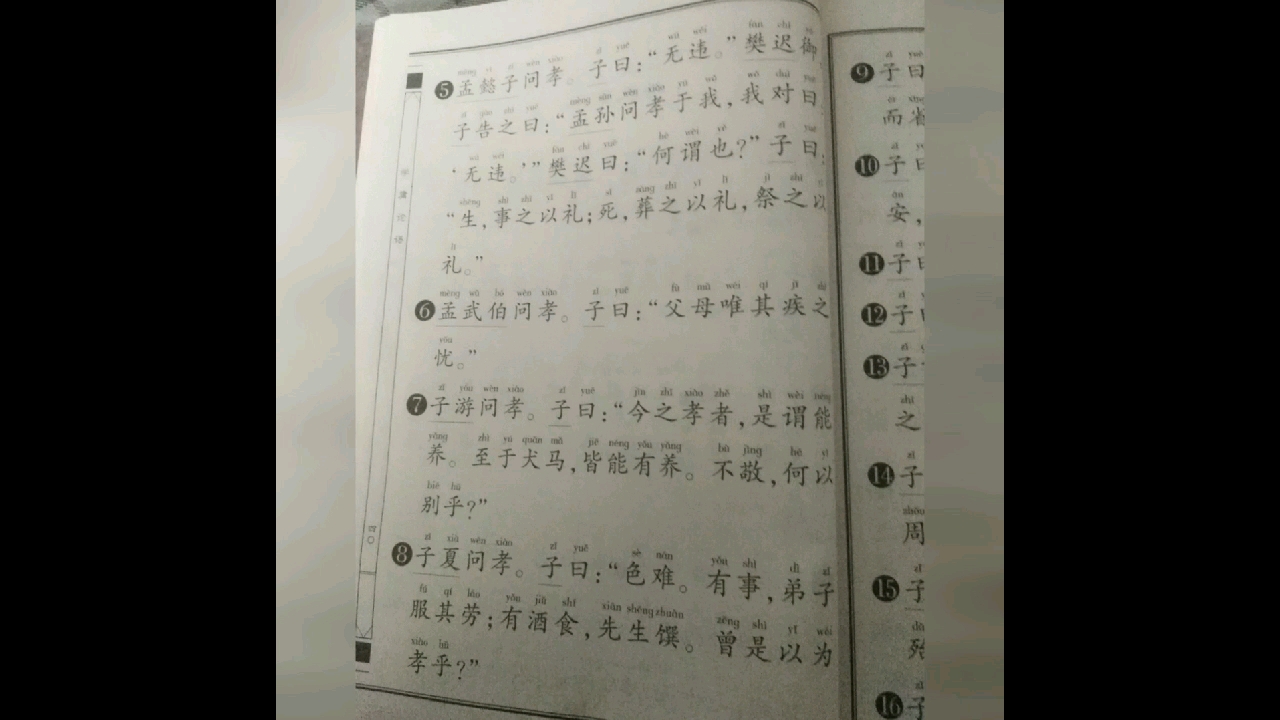 ❺孟懿子问孝。子曰：“无违。”樊迟御
子告之曰：“孟孙问孝于我，我对曰
‘无违。’”樊迟曰：“何谓也？”子曰：
“生，事之以礼；死，葬之以礼，祭之以
礼。”
❻孟武伯问孝。子曰：“父母唯其疾之
忧。”
❼子游问孝。子曰：“今之孝者，是谓能
养。至于犬马，皆能有养。不敬，何以
别乎？”
❽子夏问孝。子曰：“色难。有事，弟子
服其劳；有酒食，先生馔。曾是以为
孝乎？”
四〇
❾子曰
而
❿子曰
安，
⓫子曰
⓬子曰
⓭子
之
⓮子
周
⓯子
⓰子